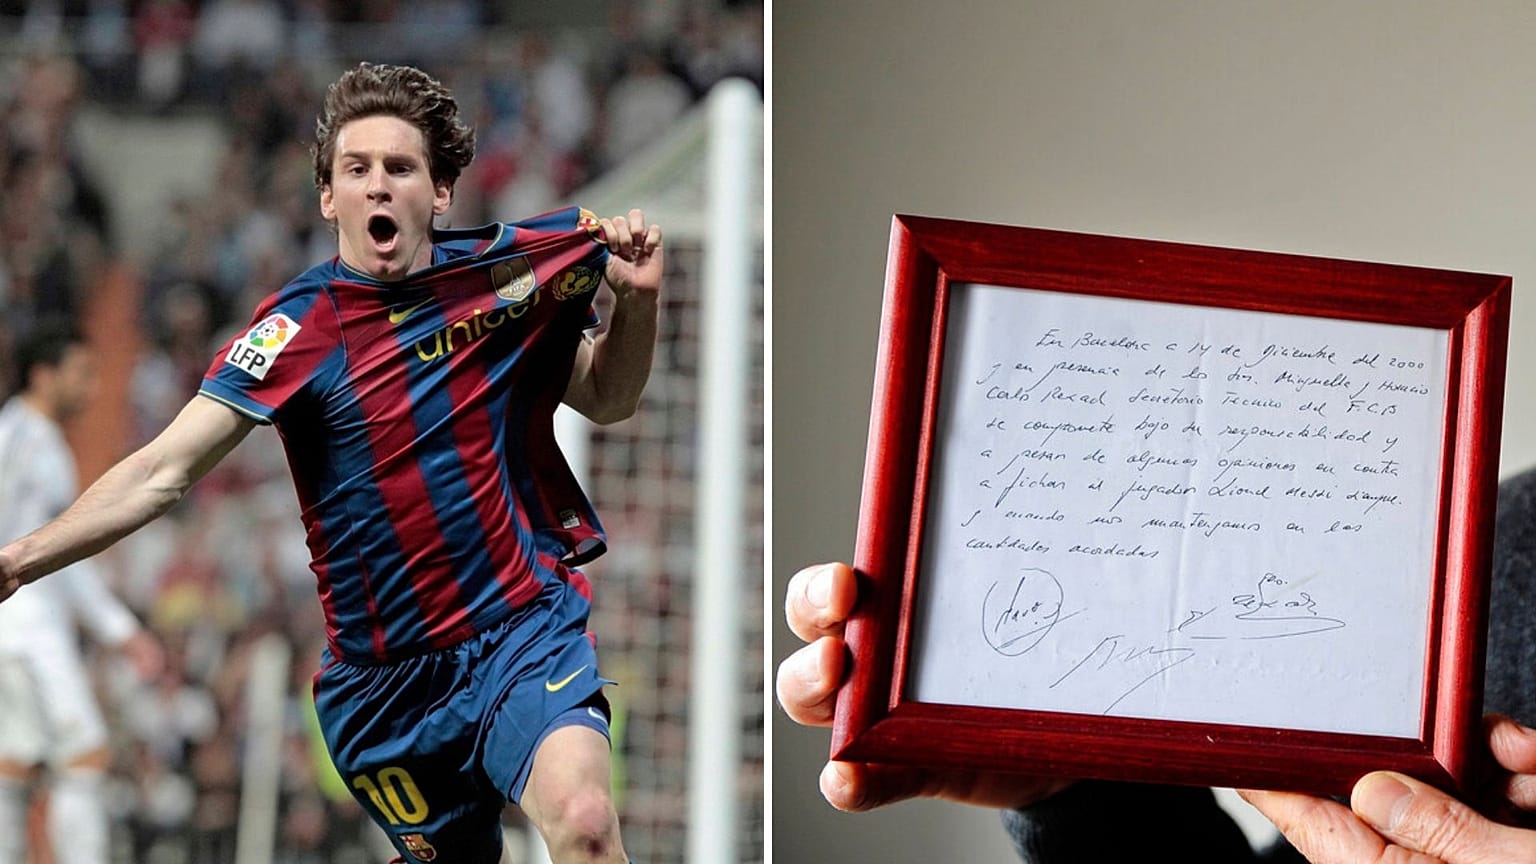 LFP
unice
10
En Barcelona a 14 de Diciembre del 2000
y en presencia de los Srs. Minguella y Horacio
Carlos Rexach Secretario Técnico del F.C.B
se compromete bajo su responsabilidad y
a pesar de algunas opiniones en contra
a fichar al jugador Lionel Messi siempre
y cuando nos mantengamos en las
cantidades acordadas